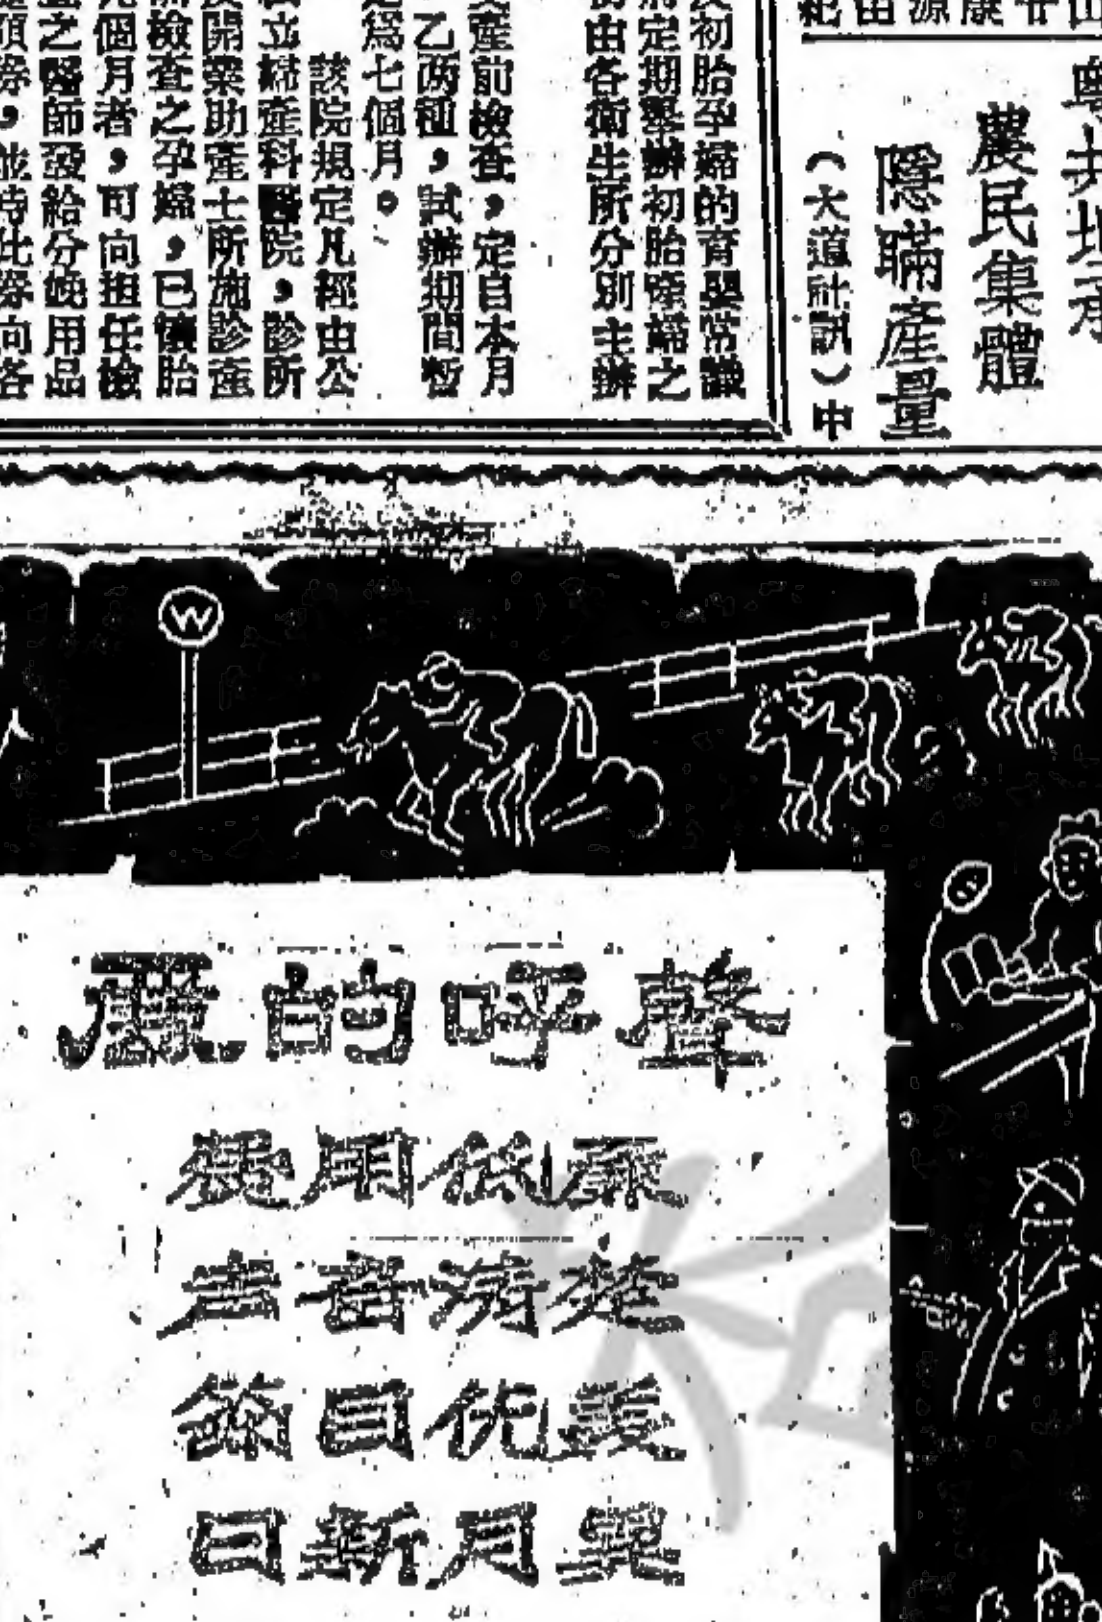 農民集體
隱瞞產量
（大道社訊）中
初胎孕婦的育嬰常識
定期舉辦初胎產婦之
由各衛生所分別主辦
產前檢查，定自本月
乙兩種，試辦期間暫
為七個月。
該院規定凡經由公
立婦產科醫院，診所
開業助產士所施診產
檢查之孕婦，已懷胎
個月者，可向担任檢
之醫師發給分娩用品
券，並持此券向各
W
的呼聲
費用低廉
声音清楚
節目优美
日新月異